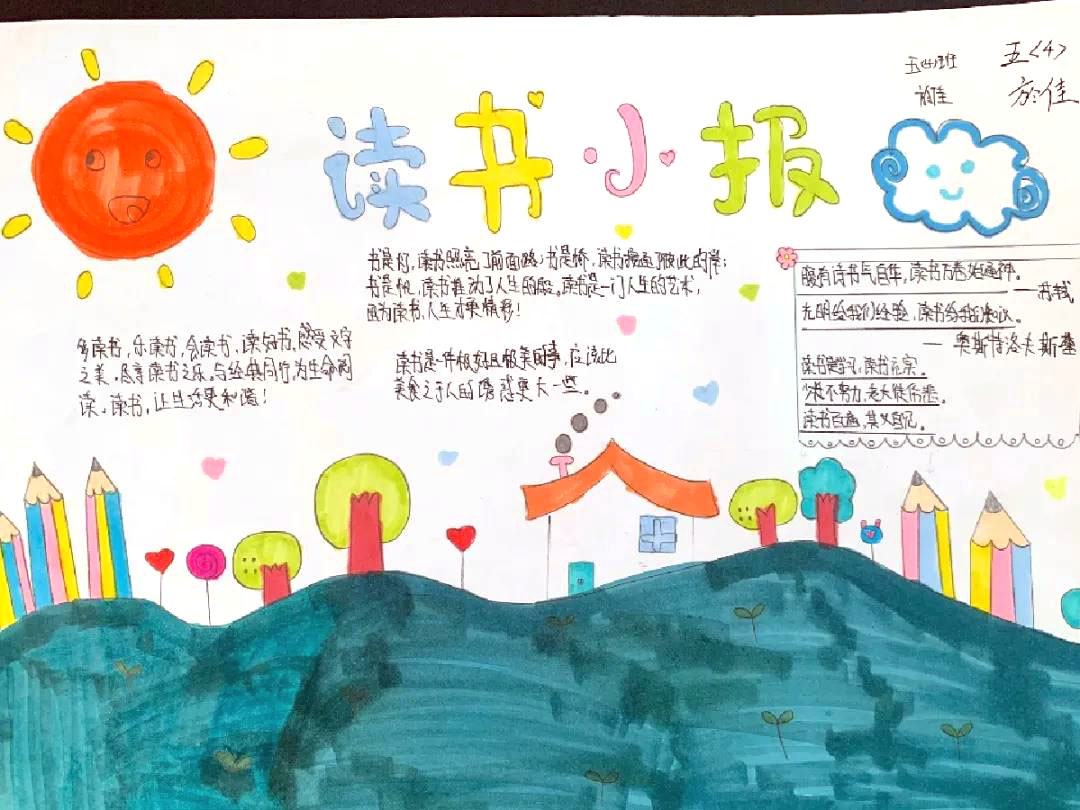 读书小报
五(4)班
五<4>
方佳
书是灯，读书照亮了前面路；书是桥，读书接通了彼此的岸；
书是帆，读书推动了人生的船。读书是一门人生的艺术，
因为读书，人生才更精彩！
多读书，乐读书，会读书，读好书，感受文字
之美，尽享读书之乐。与经典同行，为生命阅
读。读书，让生活更和谐！
读书是一件极好且极美的事，应该比
美食之于人的诱惑更大一些。
腹有诗书气自华，读书万卷始通神。
——苏轼
在明给我们经验，读书给我们知识。
—奥斯特洛夫斯基
少壮不努力，老大徒伤悲。
读书百遍，其义自见。